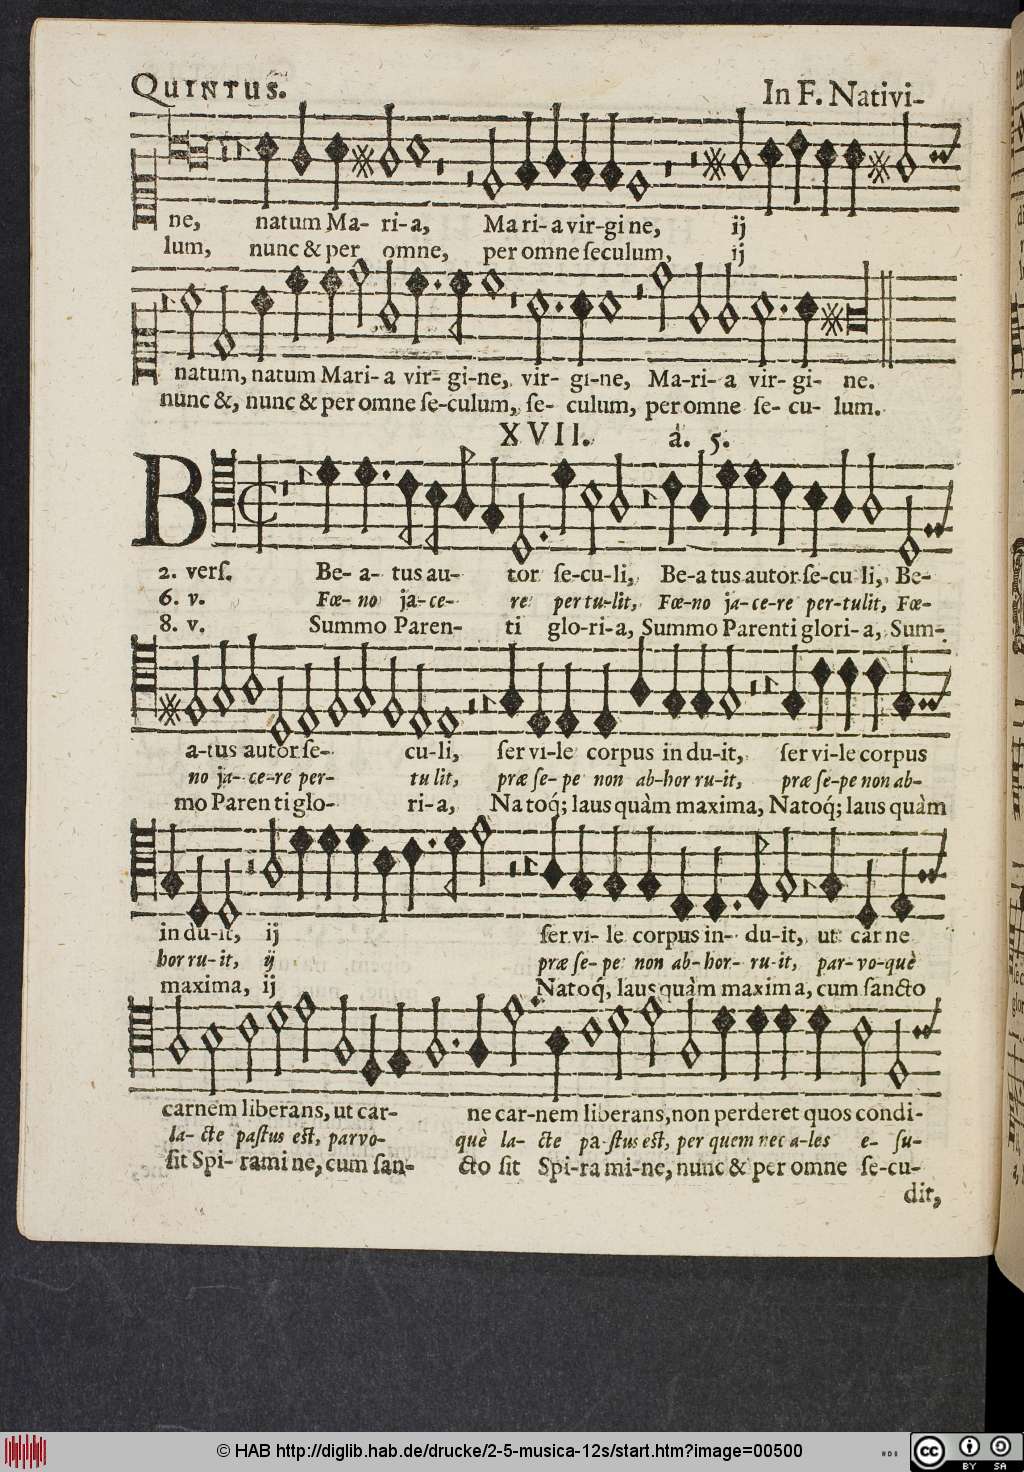 QUINTUS. In F. Nativi-
ne, natum Ma- ri-a, Ma ri-a vir-gi ne, ij
lum, nunc & per omne, per omne ſeculum, ij
natum, natum Mari-a vir- gi-ne, vir- gi-ne, Ma-ri- a vir- gi- ne.
nunc &, nunc & per omne ſe-culum, ſe- culum, per omne ſe- cu- lum.
XVII. à. 5.
B
2. verſ. Be- a- tus au- tor ſe-cu-li, Be-a tus autor ſe-cu li, Be-
6. v. Fœ- no ja-ce- re pertu-lit, Fœ-no ja-ce-re per-tulit, Fœ-
8. v. Summo Paren- ti glo-ri-a, Summo Parenti glori-a, Sum-
a-tus autor ſe- cu-li, ſer vi-le corpus in du-it, ſer vi-le corpus
no ja-ce-re per- tu lit, præ ſe-pe non ab-hor ru-it, præ ſe-pe non ab-
mo Paren ti glo- ri-a, Na toq́; laus quàm maxima, Natoq́; laus quàm
in du-it, ij ſer vi- le corpus in- du-it, ut car ne
hor ru-it, ij præ ſe-pe non ab-hor- ru-it, par-vo-què
maxima, ij Natoq́, laus quàm maxim a, cum ſancto
carnem liberans, ut car- ne car-nem liberans, non perderet quos condi-
la- cte paſtus eſt, parvo- què la- cte pa-ſtus eſt, per quem nec a-les e- ſu-
ſit Spi- rami ne, cum ſan- cto ſit Spi-ra mi-ne, nunc & per omne ſe-cu-
dit,
© HAB http://diglib.hab.de/drucke/2-5-musica-12s/start.htm?image=00500
cc BY SA